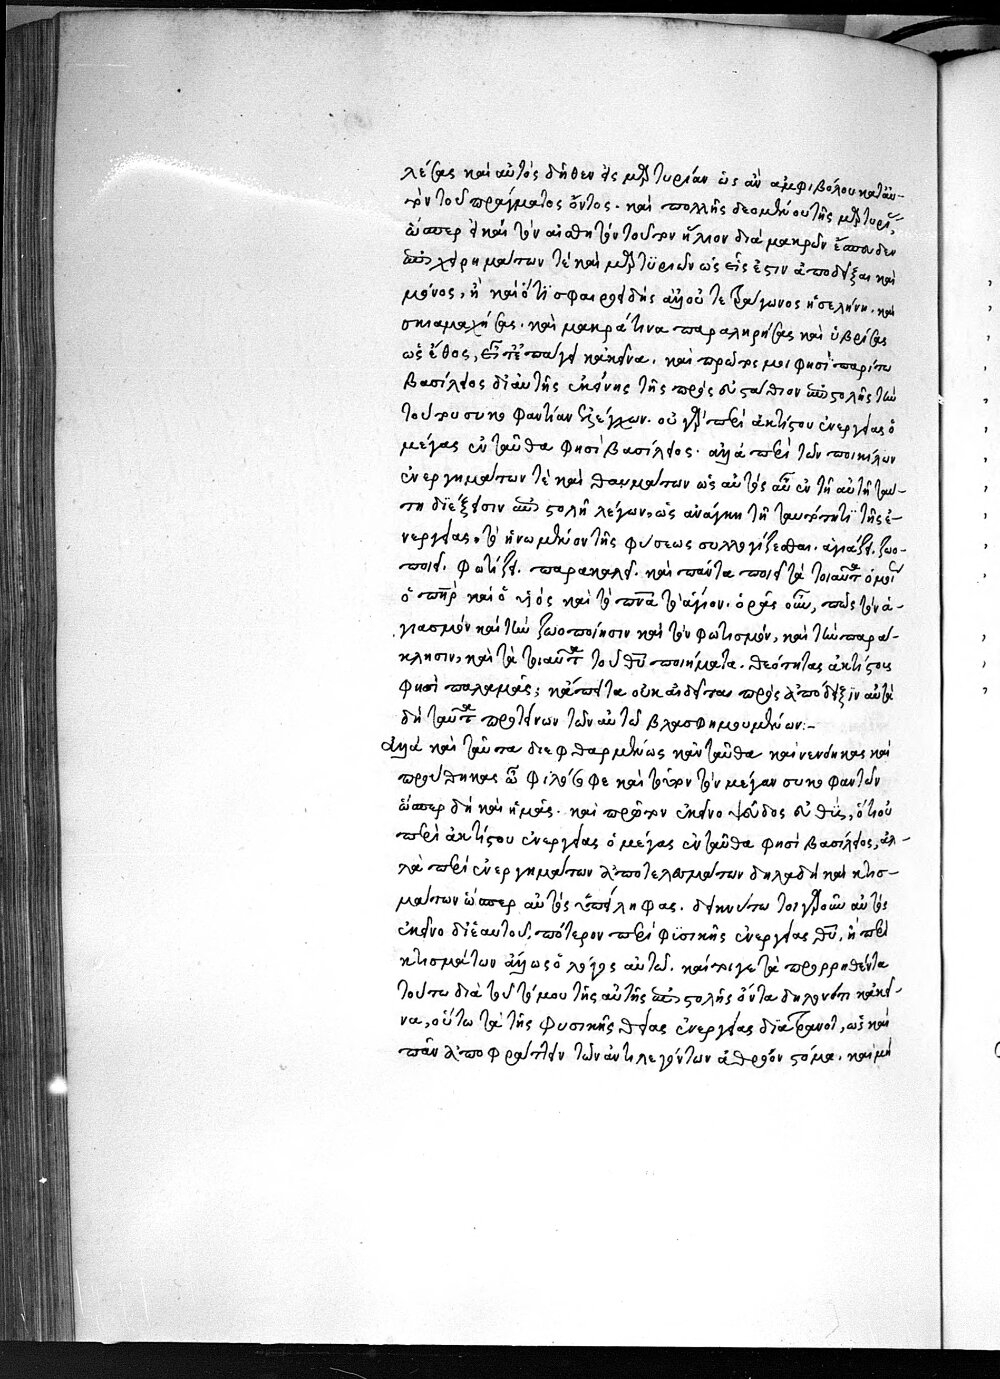 λέξας καὶ αὐτὸς δῆθεν εἰς μαρτυρίαν ὡς ἂν ἀμφιβόλου κατ' αὐ-
τὸν τοῦ πράγματος ὄντος. καὶ πολλῆς δεομένου τῆς μαρτυρίας,
ὥσπερ εἰ καὶ τὸν αἰσθητὸν τοῦτον ἥλιον διὰ μακρῶν ἔσπευδεν
ἐπιχειρημάτων τὲ καὶ μαρτυριῶν ὡς εἷς ἐστιν ἀποδεῖξαι καὶ
μόνος, ἢ καὶ ὅτι σφαιροειδὴς ἀλλ' οὐ τετράγωνος ἡ σελήνη. καὶ
σκιαμαχήσας. καὶ μακρά τινα παραληρήσας καὶ ὑβρίσας
ὡς ἔθος, εἶτ' ἐπάγει κἀκεῖνα. καὶ πρῶτος μοι φησὶ παρίτω
Βασίλειος δι' αὐτῆς ἐκείνης τῆς πρὸς εὐστάθιον ἐπιστολῆς τὴν
τούτου συκοφαντίαν ἐξελέγχων. οὐ γὰρ περὶ ἀκτίστου ἐνεργείας ὁ
μέγας ἐνταῦθα φησὶ βασίλειος. ἀλλὰ περὶ τῶν ποικίλων
ἐνεργημάτων τὲ καὶ θαυμάτων ὡς αὐτὸς αὖ ἐν τῇ αὐτῇ ταύ-
τῃ διέξεισιν ἐπιστολῇ λέγων, ὡς ἀνάγκη τῇ ταυτότητι τῆς ἐ-
νεργείας, τὸ ἡνωμένον τῆς φύσεως συλλογίζεσθαι. ἁγιάζει. ζωο-
ποιεῖ. φωτίζει. παρακαλεῖ. καὶ πάντα ποιεῖ τὰ τοιαῦτα ὁμοίως
ὁ πηρ καὶ ὁ υἱὸς καὶ τὸ πνα τὸ ἅγιον. ὁρᾷς οὖν, πῶς τὸν ἁ-
γιασμὸν καὶ τὴν ζωοποίησιν καὶ τὸν φωτισμὸν, καὶ τὴν παρά-
κλησιν, καὶ τὰ τοιαῦτα τοῦ θυ ποιήματα. θεότητας ἀκτίστους
φησὶ παλαμᾶς; κἄπειτα οὐκ αἰδεῖται πρὸς ἀπόδειξιν αὐτὰ
δὴ ταῦτα προτείνων τῶν αὐτῷ βλασφημουμένων:-
Ἀλλὰ καὶ ταῦτα διεφθαρμένως κἀνταῦθα καὶ νενόηκας καὶ
προύθηκας ὦ φιλόσοφε καὶ τοῦτον τὸν μέγαν συκοφαντῶν
ὥσπερ δὴ καὶ ἡμᾶς. καὶ πρῶτον ἐκεῖνο ψεῦδος εὐθὺς, ὅτι οὐ
περὶ ἀκτίστου ἐνεργείας ὁ μέγας ἐνταῦθα φησὶ βασίλειος, ἀλ-
λὰ περὶ ἐνεργημάτων ἀποτελεσμάτων δηλαδὴ καὶ κτισ-
μάτων ὥσπερ αὐτὸς ὑπείληφας. δεικνύτω τοιγαροῦν αὐτὸς
ἐκεῖνο δι' ἑαυτοῦ, πότερον περὶ φυσικῆς ἐνεργείας θυ, ἢ περὶ
κτισμάτων ἄλλως ὁ λόγος αὐτῷ. καίτοιγε τὰ προρρηθέντα
τούτω διὰ τοῦ τόμου τῆς αὐτῆς ἐπιστολῆς ὄντα δηλονότι κἀκεῖ-
να, οὕτω τὰ τῆς φυσικῆς θείας ἐνεργείας διατρανοῖ, ὡς καὶ
πᾶν ἀποφράττειν τῶν ἀντιλεγόντων ἀθρόον στόμα. καὶ μὴ